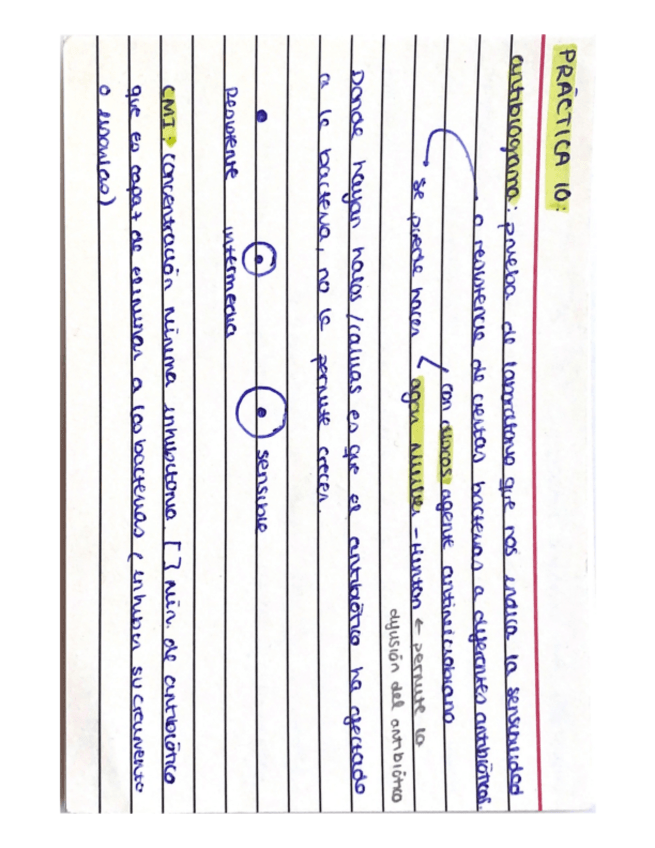 PRÁCTICA 10:
antibiograma: prueba de laboratorio que nos indica la sensibilidad
o resistencia de ciertas bacterias a diferentes antibióticos.
con discos agente antimicrobiano
se puede hacer agar Müller - Hinton ← permite la
difusión del antibiótico
Donde hayan halos/calvas es que el antibiótico ha afectado
a la bacteria, no le permite crecer.
sensible
Resistente intermedia
CMI: concentración mínima inhibitoria. [ ] mín. de antibiótico
que es capaz de eliminar a las bacterias (inhiben su crecimiento
o